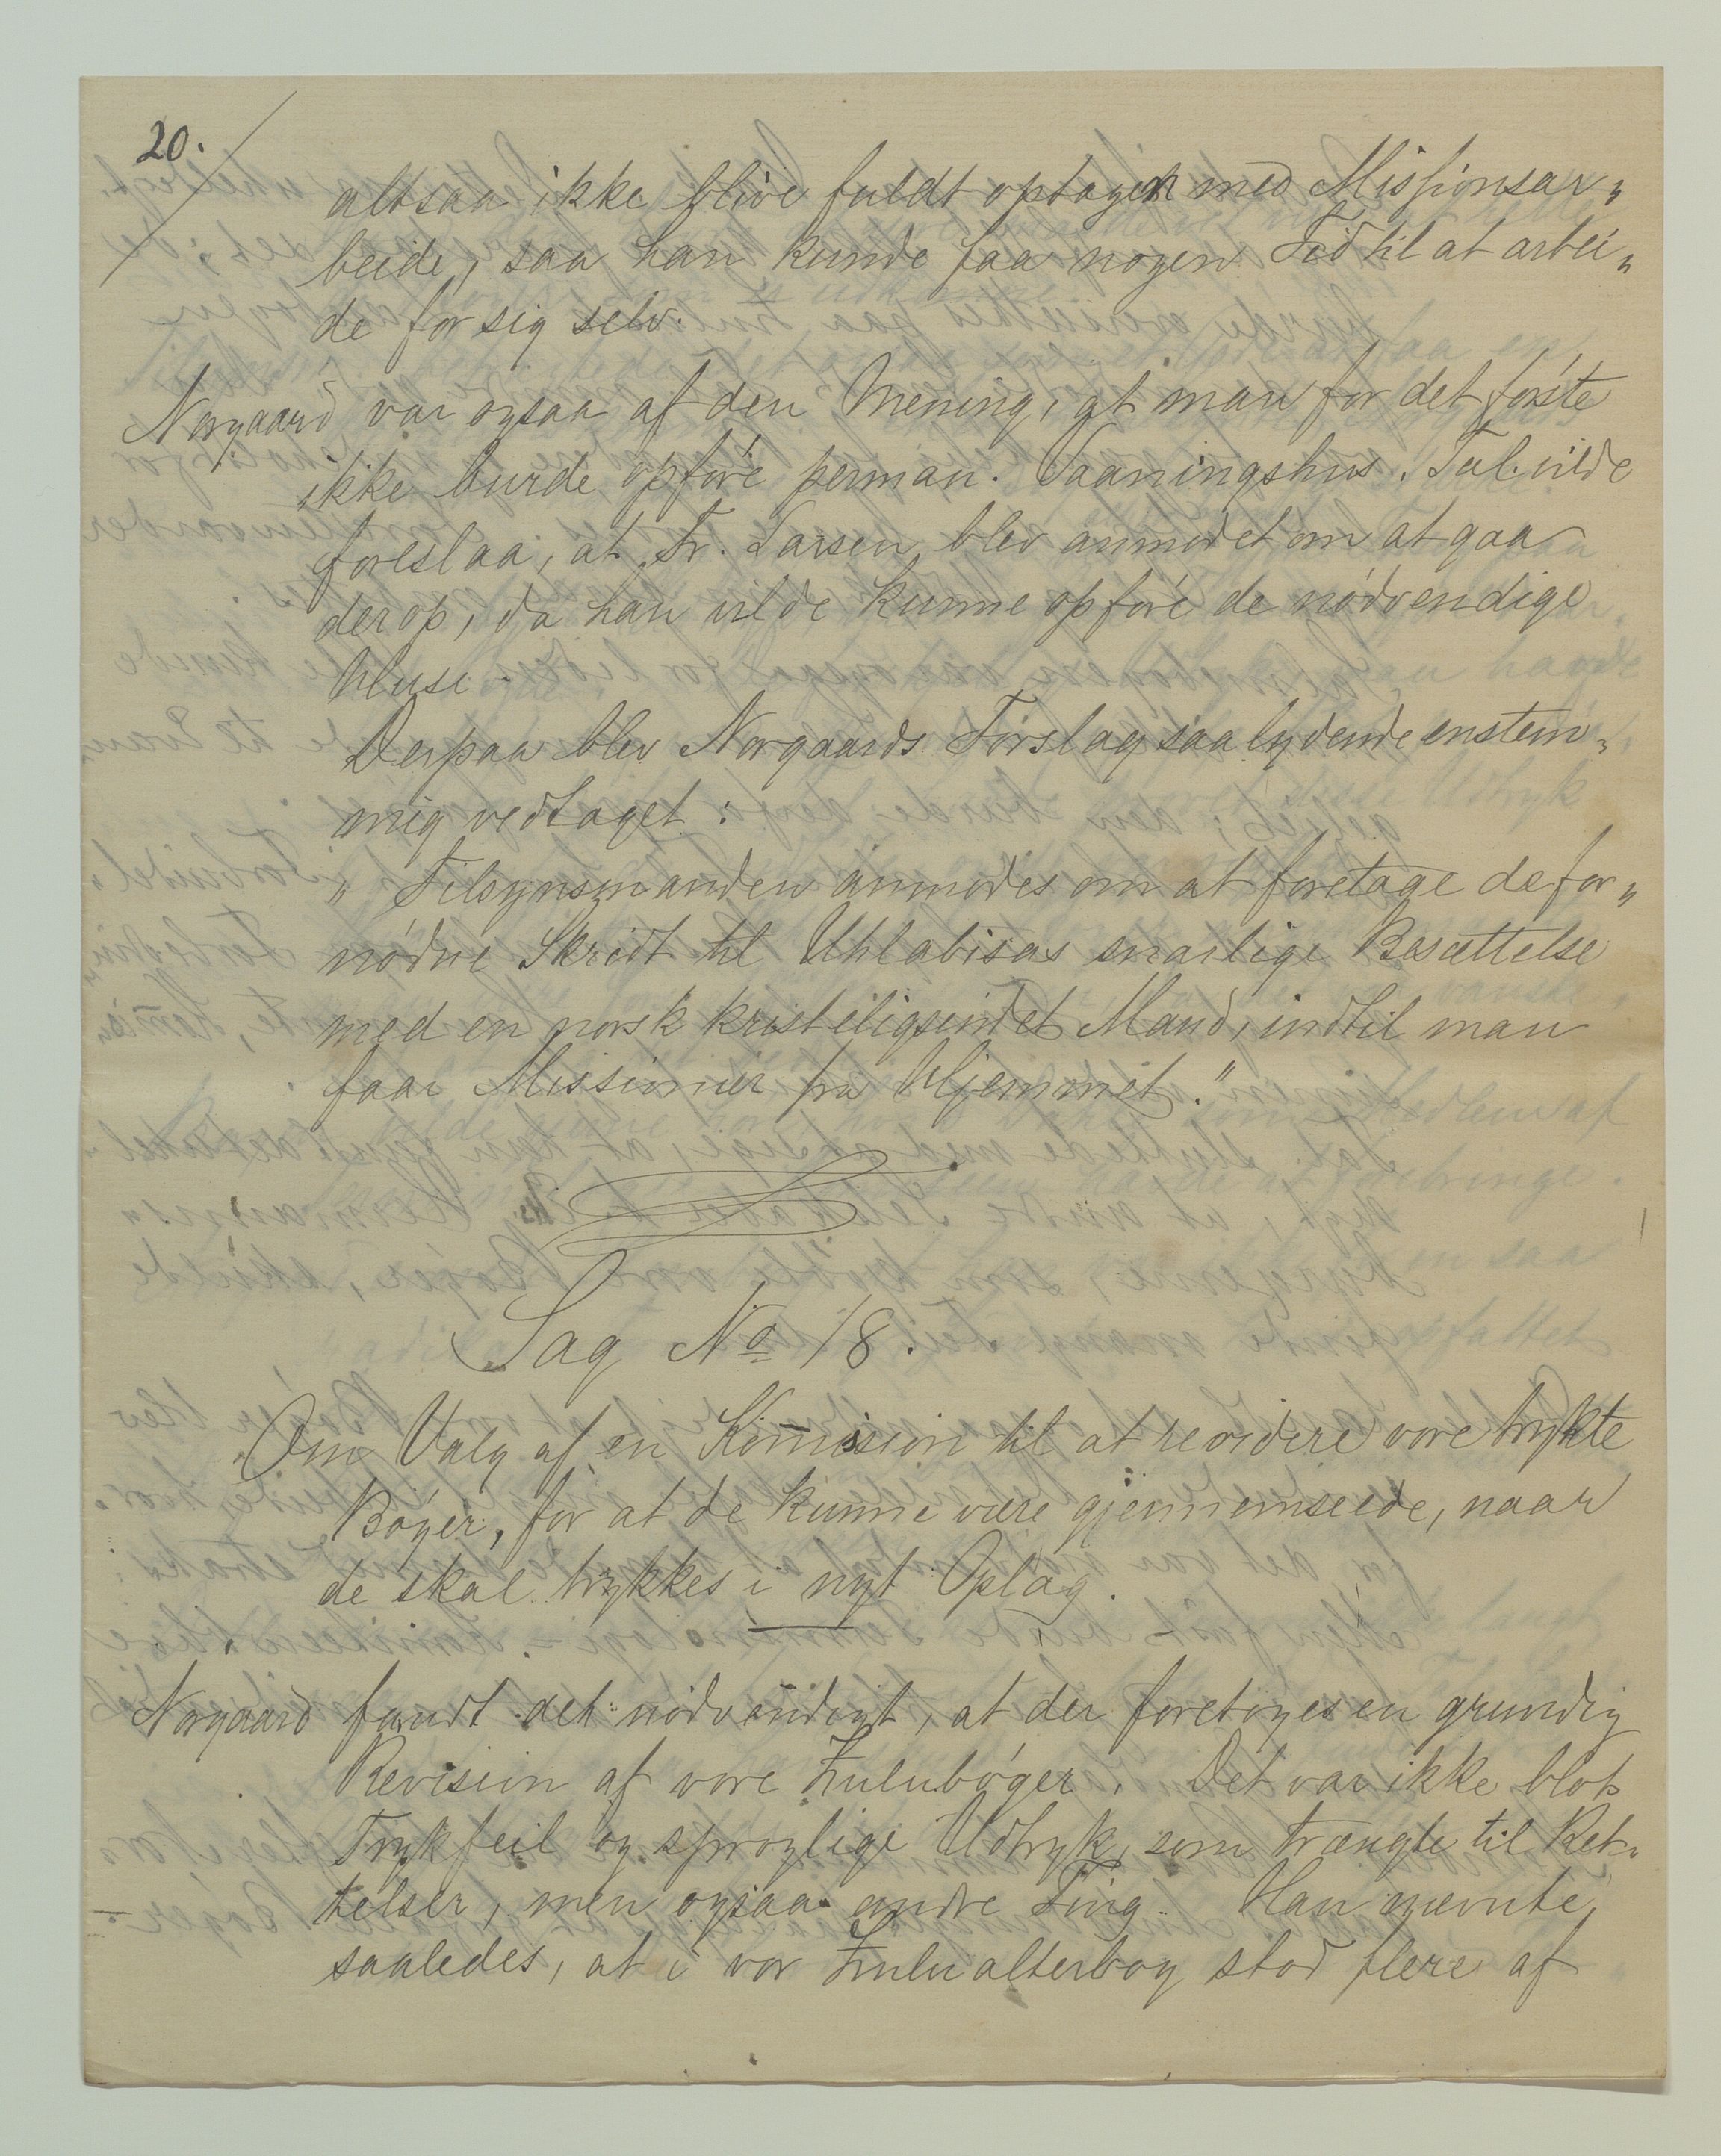 20.
altsaa ikke blive fuldt optagen med Missionsar„
beide, saa han kunde faa nogen Tid til at arbei„
de for sig selv.
Norgaard var ogsaa af den Mening, at man for det første
ikke burde opføre perman. Vaaningshus. Tal. vilde
foreslaa, at Fr. Larsen blev anmodet om at gaa
derop, da han vilde kunne opføre de nødvendige
Huse.
Derpaa blev Norgaards Forslag saalydende enstem„
mig vedtaget:
„Tilsynsmanden anmodes om at foretage de for„
nødne Skridt til Uhlabisas snarlige Besættelse
med en norsk kristeligsindet Mand, indtil man
faar Missionær fra Hjemmet."
Sag No 18.
Om Valg af en Kom̅ision til at revidere vore trykte
Bøger, for at de kunne være gjennemseede, naar
de skal trykkes i nyt Oplag.
Norgaard fandt det nødvendigt, at der foretoges en grundig
Revision af vore Zulubøger. Det var ikke blot
Trykfeil og sproglige Udtryk, som trængte til Ret„
telser, men ogsaa andre Ting. Han nævnte
saaledes, at i vor Zulu alterbog stod flere af